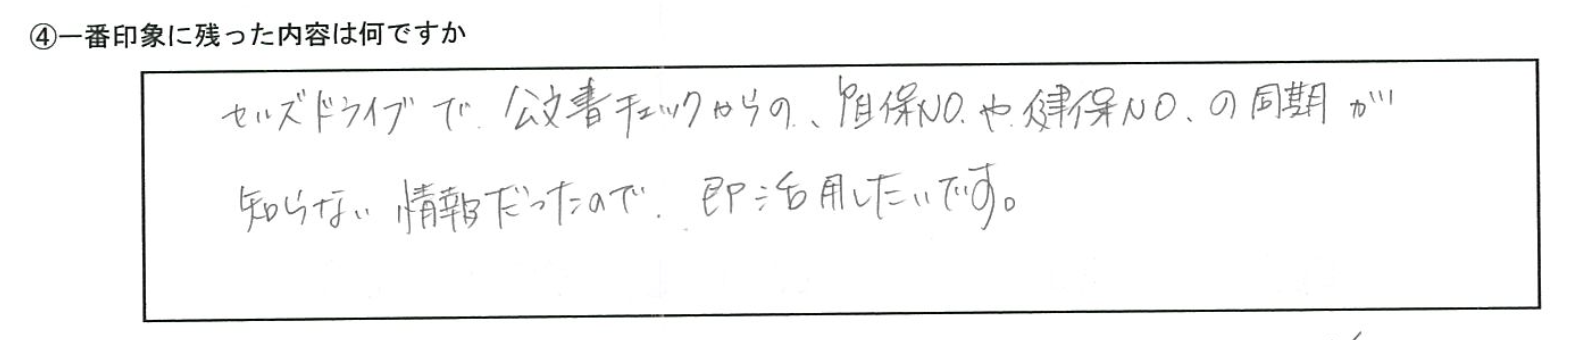 ④一番印象に残った内容は何ですか
セルズドライブで、公文書チェックからの、雇保NO.や健保NO.の同期が
知らない情報だったので、即活用したいです。